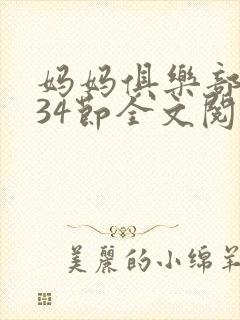 妈妈俱樂部
34節全文閱
美麗的小綿羊